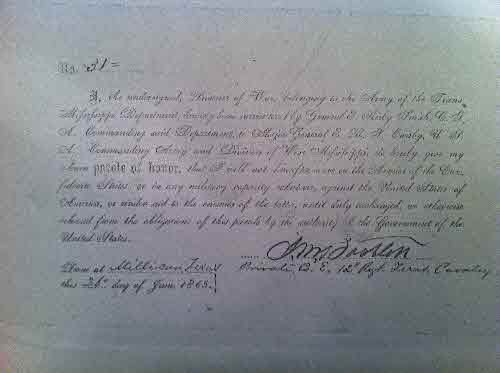 No. 31=
I, the undersigned, Prisoner of War, belonging to the Army of the Trans
Mississippi Department, having been surrendered by General E. Kirby Smith, C. S.
A. Commanding said Department, to Major General E. R. S. Canby, U. S.
A. Commanding Army and Division of West Mississippi, do hereby give my
solemn parole of honor, that I will not hereafter serve in the Armies of the Con-
federate States, or in any military capacity whatever, against the United States of
America, or render aid to the enemies of the latter, until duly exchanged, or otherwise
released from the obligations of this parole by the authority of the Government of the
United States.
Done at Millican Texas
this 26th day of June 1865.
Private Co. E, 12th Regt. Texas Cavalry